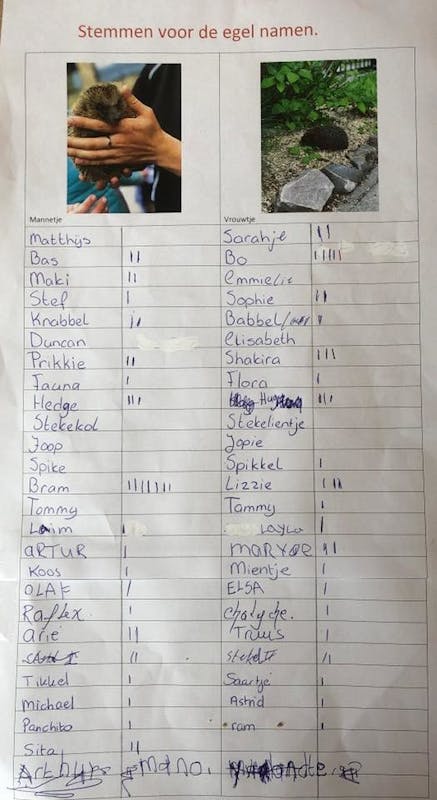 Stemmen voor de egel namen.
Mannetje Vrouwtje
Matthijs Sarahje II
Bas II Bo IIIII
Maki II Emmelie
Stef I Sophie II
Knabbel II Babbel I
Duncan Elisabeth
Prikkie II Shakira III
Fauna I Flora I
Hedge III III
Stekekol Stekelientje
Joop Jopie
Spike Spikkel I
Bram IIIIIII Lizzie III
Tommy I Tammy I
I Layla I
ARTUR I II
Koos I Mientje I
OLAF I ELSA I
I I
Arie II Truus I
II II
Tikkel I Saartje I
Michael I Astrid I
Panchito I ram I
Sita II